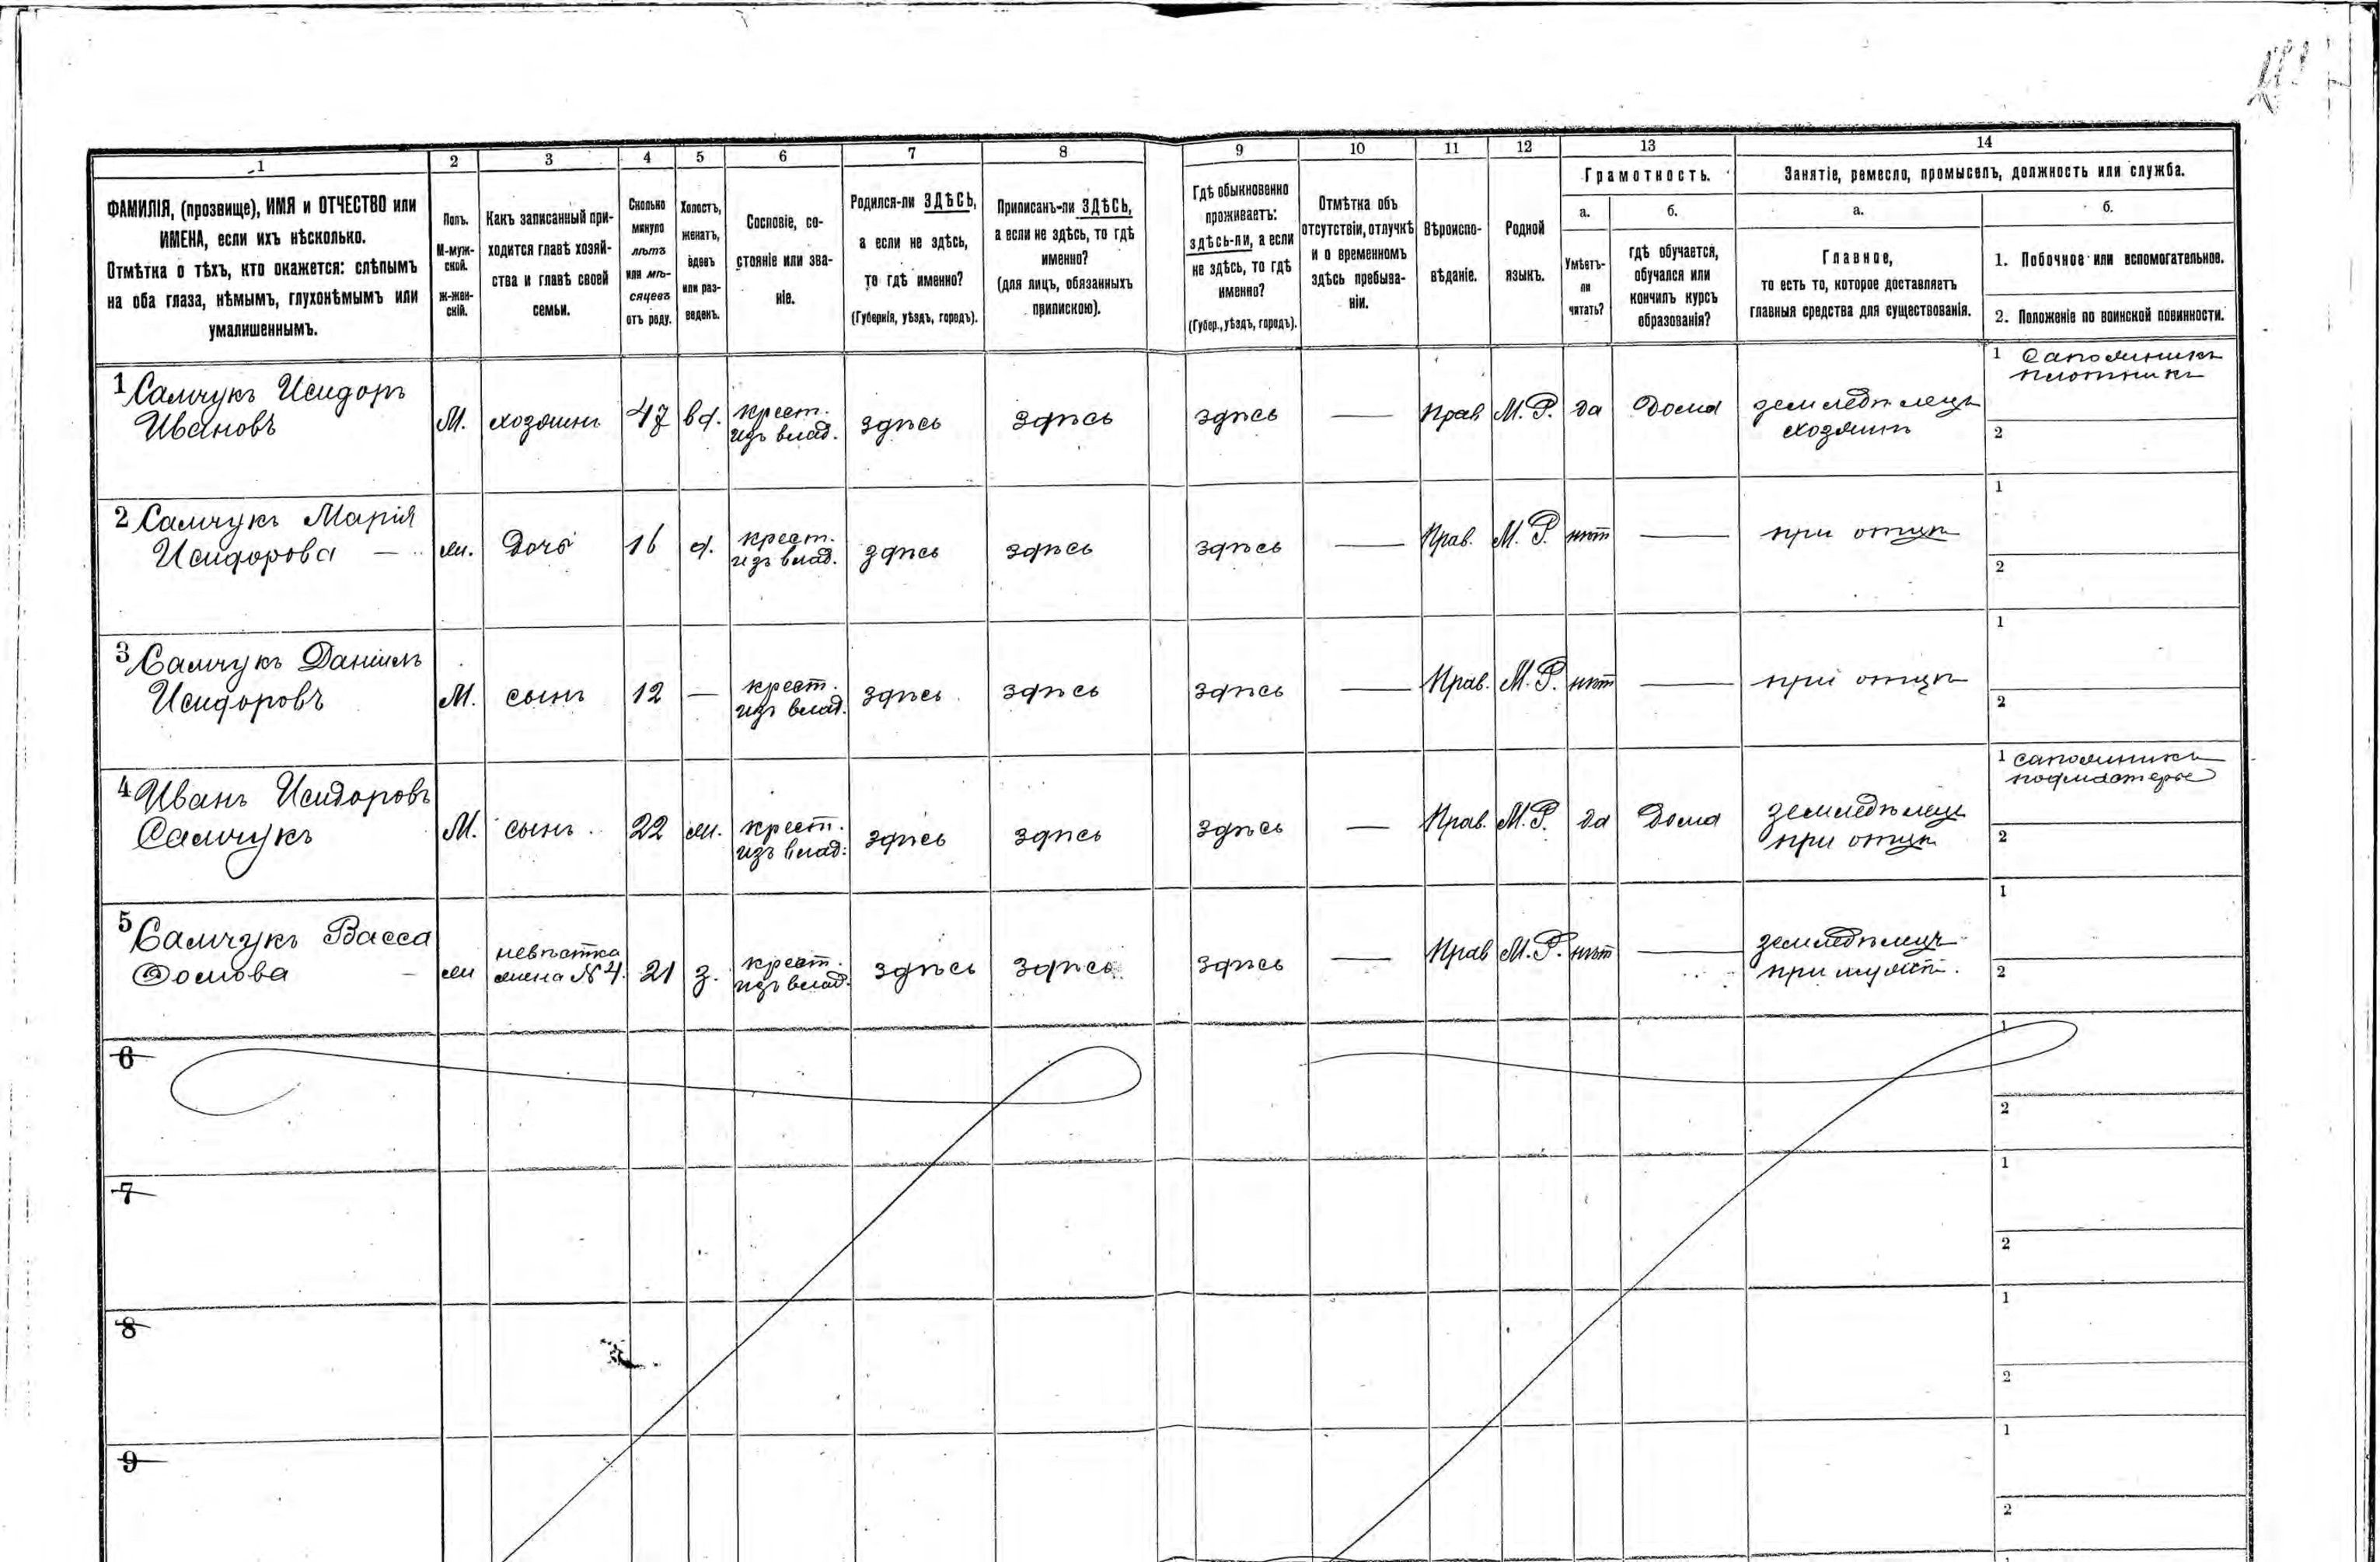 1
2
3
4
5
6
7
8
9
10
11
12
13
14
ФАМИЛІЯ, (прозвище), ИМЯ и ОТЧЕСТВО или
ИМЕНА, если ихъ нѣсколько.
Отмѣтка о тѣхъ, кто окажется: слѣпымъ
на оба глаза, нѣмымъ, глухонѣмымъ или
умалишеннымъ.
Полъ.
М-муж-
ской.
Ж-жен-
скій.
Какъ записанный при-
ходится главѣ хозяй-
ства и главѣ своей
семьи.
Сколько
минуло
лѣтъ
или мѣ-
сяцевъ
отъ роду.
Холостъ,
женатъ,
вдовъ
или раз-
веденъ.
Сословіе, со-
стояніе или зва-
ніе.
Родился-ли ЗДѢСЬ,
а если не здѣсь,
то гдѣ именно?
(Губернія, уѣздъ, городъ).
Приписанъ-ли ЗДѢСЬ,
а если не здѣсь, то гдѣ
именно?
(для лицъ, обязанныхъ
припискою).
Гдѣ обыкновенно
проживаетъ:
здѣсь-ли, а если
не здѣсь, то гдѣ
именно?
(Губер., уѣздъ, городъ).
Отмѣтка объ
отсутствіи, отлучкѣ
и о временномъ
здѣсь пребыва-
ніи.
Вѣроиспо-
вѣданіе.
Родной
языкъ.
Грамотность.
а.
Умѣетъ-
ли
читать?
б.
гдѣ обучается,
обучался или
кончилъ курсъ
образованія?
Занятіе, ремесло, промыселъ, должность или служба.
а.
Главное,
то есть то, которое доставляетъ
главныя средства для существованія.
б.
1. Побочное или вспомогательное.
2. Положеніе по воинской повинности.
1 Самчукъ Исидоръ
Ивановъ
М.
хозяинъ
47
вд.
крест.
изъ влад.
здѣсь
здѣсь
здѣсь
—
Прав
М. Р.
да
Дома
земледѣлецъ
хозяинъ
1 Сапожникъ
плотникъ
2
2 Самчукъ Марія
Исидорова —
ж.
Дочь
16
д.
крест.
изъ влад.
здѣсь
здѣсь
здѣсь
—
Прав.
М. Р.
нѣт
—
при отцѣ
1
2
3 Самчукъ Даніилъ
Исидоровъ
М.
сынъ
12
—
крест.
изъ влад.
здѣсь
здѣсь
здѣсь
—
Прав.
М. Р.
нѣт
—
при отцѣ
1
2
4 Иванъ Исидоровъ
Самчукъ
М.
сынъ.
22
ж.
крест.
изъ влад.
здѣсь
здѣсь
здѣсь
—
Прав.
М. Р.
да
Дома
земледѣлецъ
при отцѣ
1 сапожникъ
подмастерье
2
5 Самчукъ Васса
Фомова
ж
невѣстка
жена №4.
21
з.
крест.
изъ влад.
здѣсь
здѣсь
здѣсь
—
Прав
М. Р.
нѣт
—
земледѣлецъ
при мужѣ.
1
2
6
1
2
7
1
2
8
1
2
9
1
2